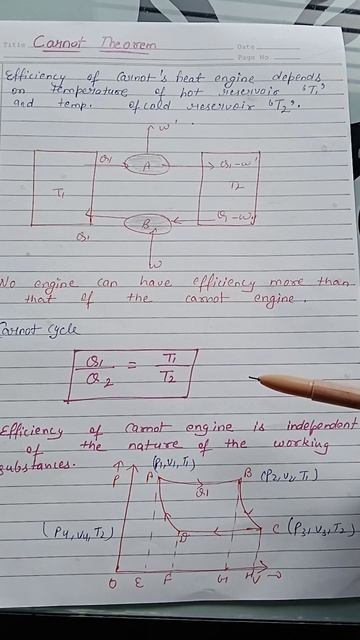 Title Carnot Theorem
Date
Page No
Efficiency of Carnot's heat engine depends
on temperature of hot reservoir "T1"
and temp. of cold reservoir "T2".
w'
Q1 A Q1-w'
T1 T2
B Q1-w
Q1
w
No engine can have efficiency more than
that of the carnot engine.
Carnot cycle
Q1/Q2 = T1/T2
Efficiency of carnot engine is independent
of the nature of the working
substances.
(P1,V1,T1)
P A B (P2,V2,T1)
Q1
(P4,V4,T2) D C (P3,V3,T2)
O E F G H V